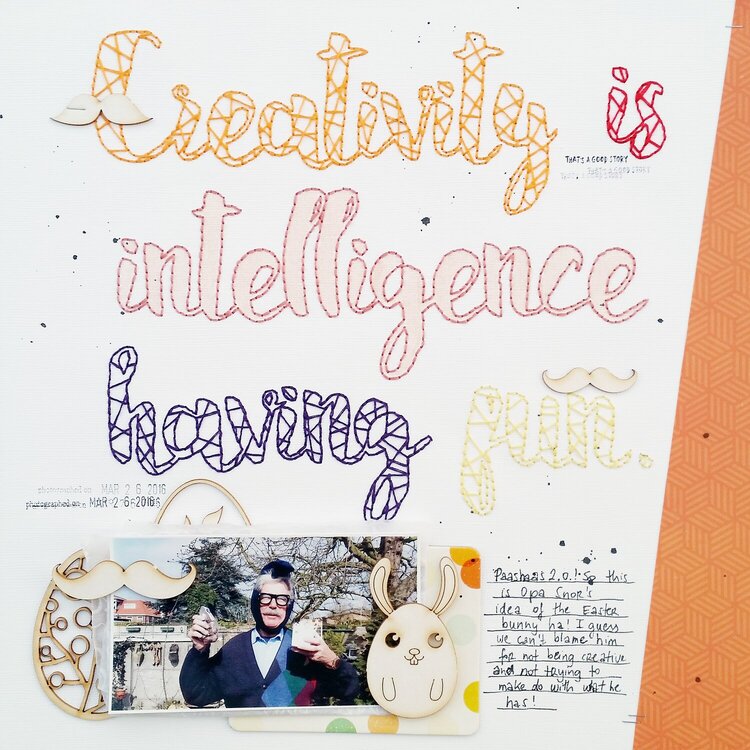 Creativity is
THAT'S A GOOD STORY
THAT'S A GOOD STORY
THAT'S A GOOD STORY
intelligence
having fun.
photographed on MAR 26 2016
photographed on MAR 26 2016
Paashaas 2.0.! So this
is Opa Snor's
idea of the Easter
bunny ha! I guess
we can't blame him
for not being creative
and not trying to
make do with what he
has!